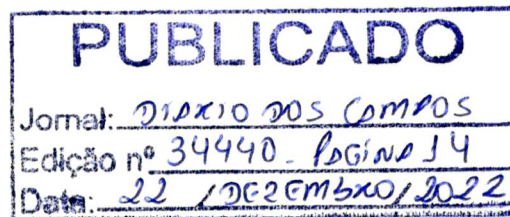 PUBLICADO
Jornal: DIÁRIO DOS CAMPOS
Edição nº 34440 - PÁGINA 14
Data: 22 / DEZEMBRO / 2022